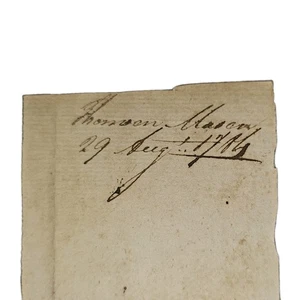 Thomson Mason
29 Augt. 1784